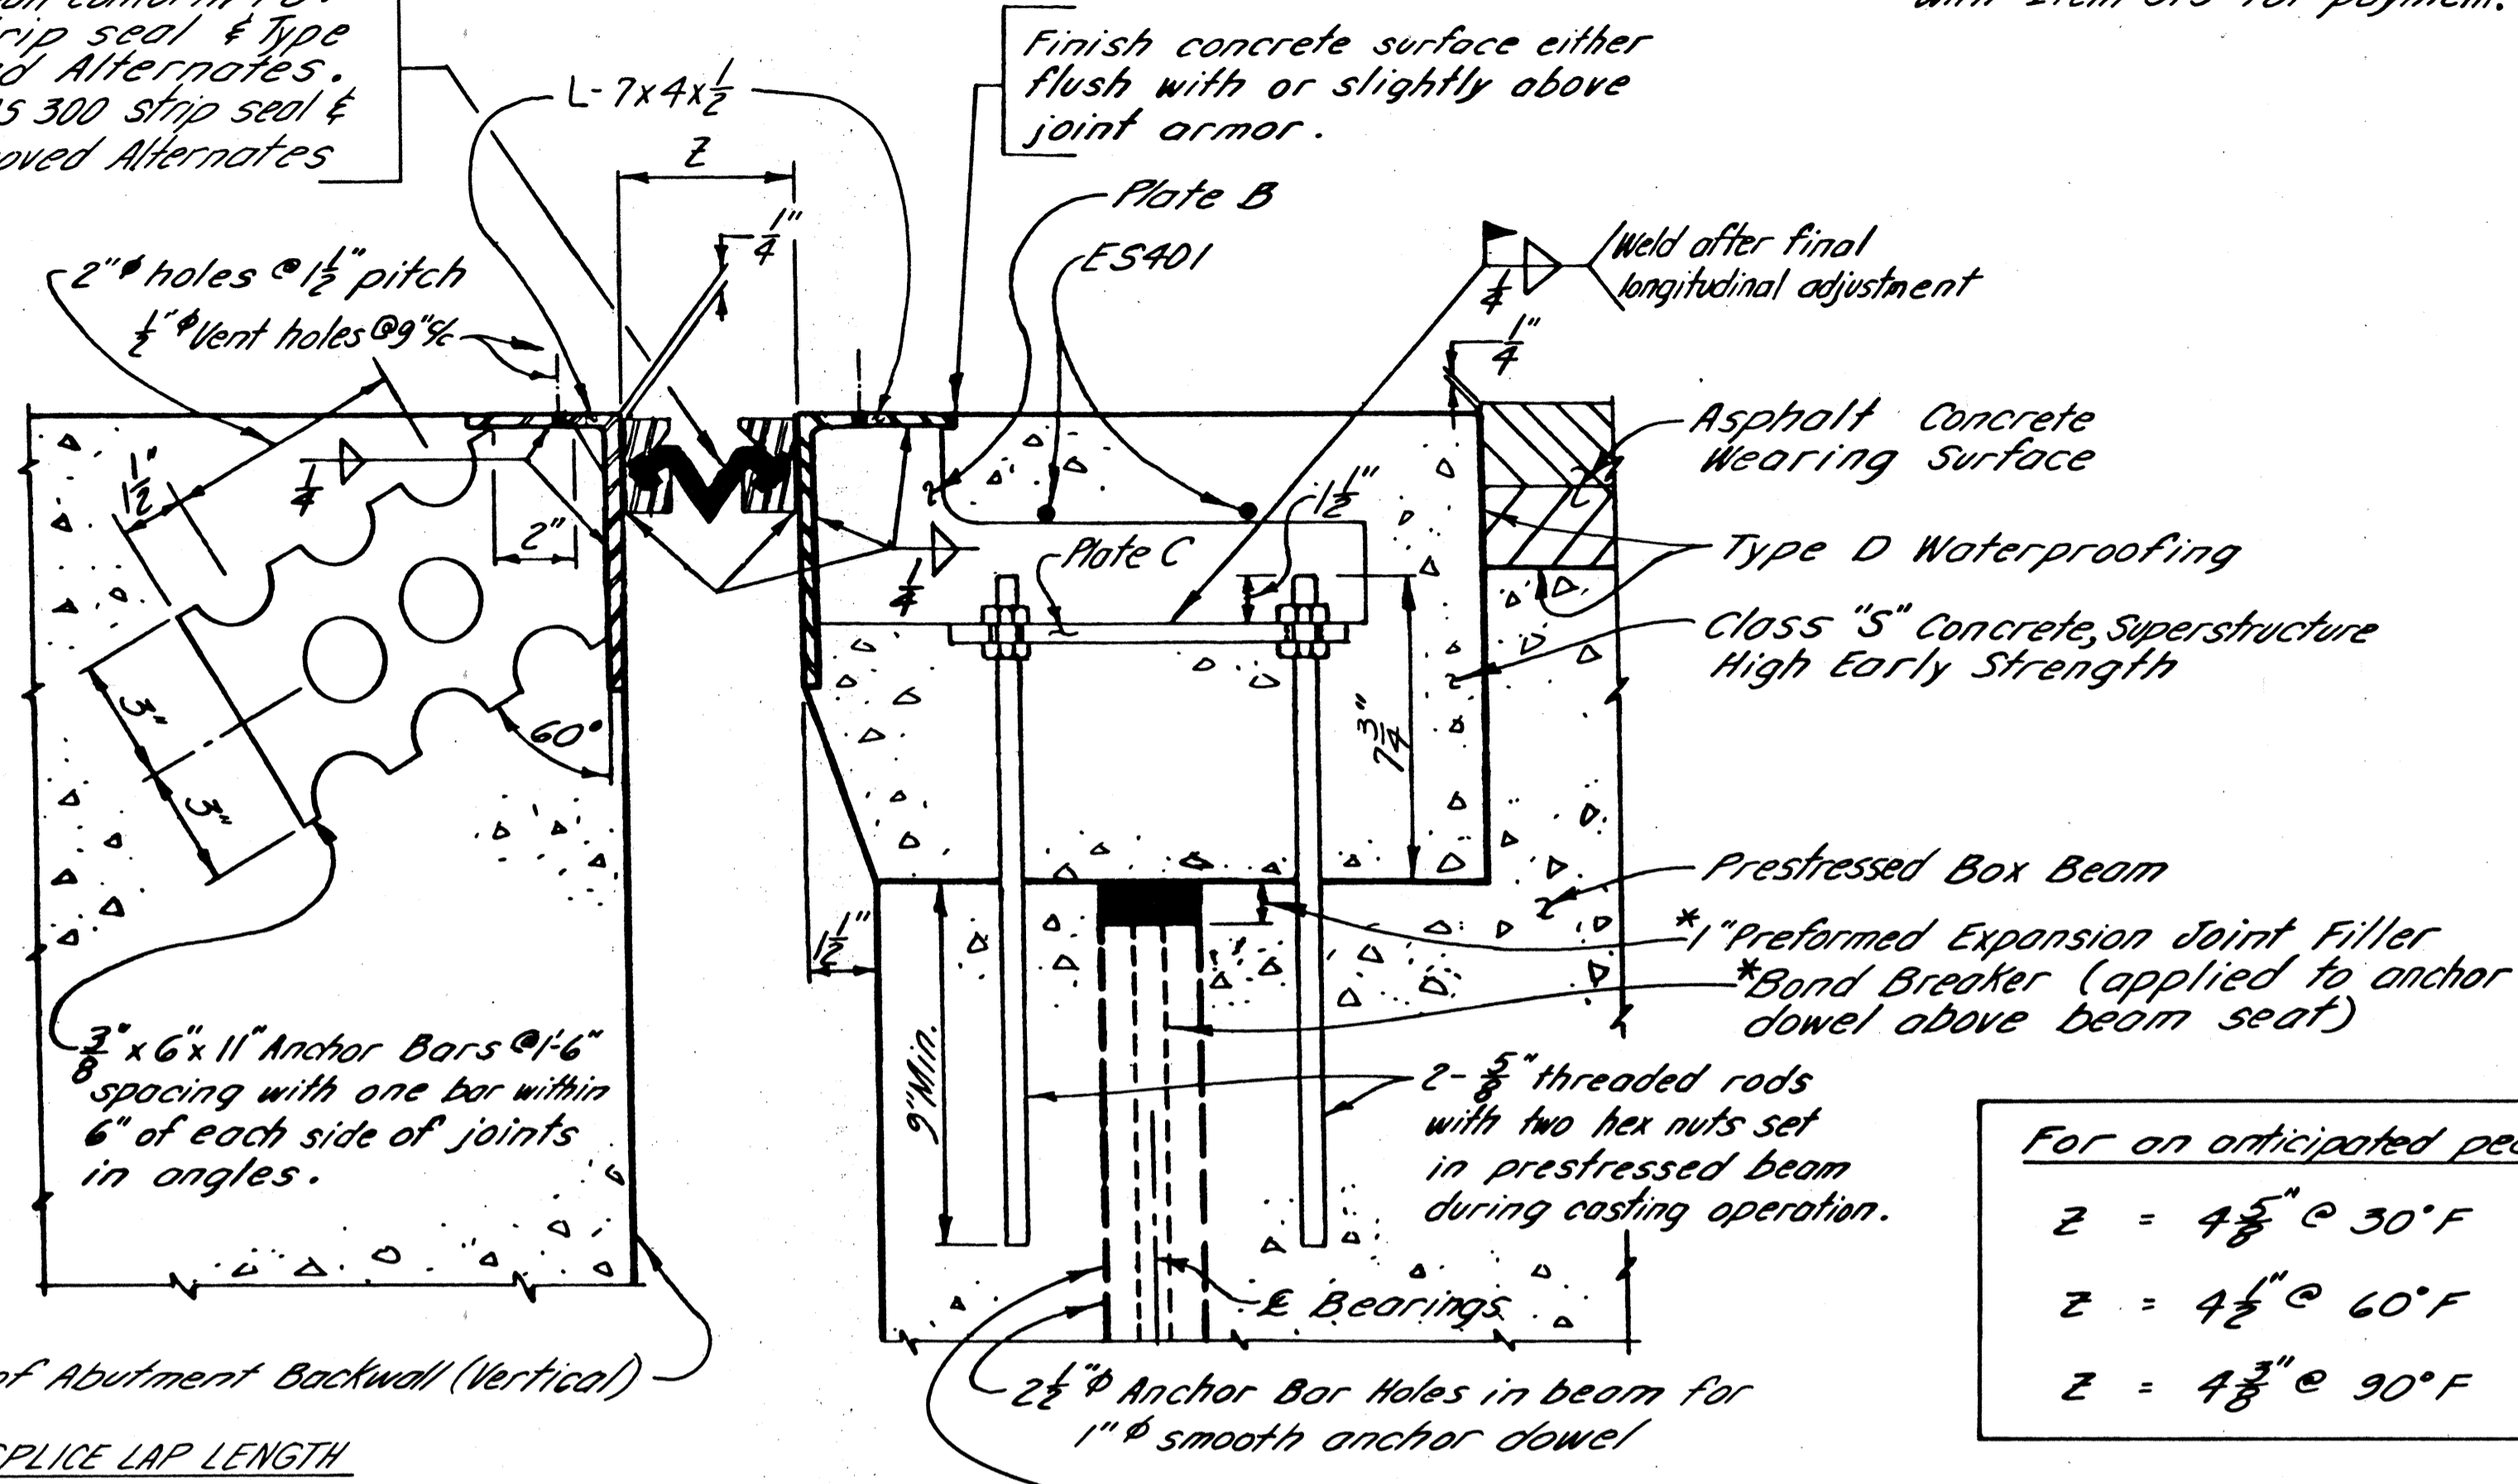 rip seal & Type
Alternates.
300 strip seal &
Alternates
for payment.
L-7x4x1/2
Z
1/4"
Finish concrete surface either
flush with or slightly above
joint armor.
Plate B
ES401
Weld after final
longitudinal adjustment
1/4
1/4"
2"ϕ holes @ 1 1/2" pitch
1/2"ϕ Vent holes @ 9" c/c
1 1/2"
1/4
2"
1 1/2"
Plate C
1/4
Asphalt Concrete
Wearing Surface
Type D Waterproofing
Class "S" Concrete, Superstructure
High Early Strength
3"
3"
60°
7 3/4"
Prestressed Box Beam
*1" Preformed Expansion Joint Filler
*Bond Breaker (applied to anchor
dowel above beam seat)
1 1/2"
9" Min.
3/8" x 6" x 11" Anchor Bars @ 1'-6"
spacing with one bar within
6" of each side of joints
in angles.
2- 5/8" threaded rods
with two hex nuts set
in prestressed beam
during casting operation.
℄ Bearings
For an anticipated
Z = 4 5/8" @ 30°F
Z = 4 1/2" @ 60°F
Z = 4 3/8" @ 90°F
of Abutment Backwall (Vertical)
2 1/2"ϕ Anchor Bar Holes in beam for
1"ϕ smooth anchor dowel
SPLICE LAP LENGTH